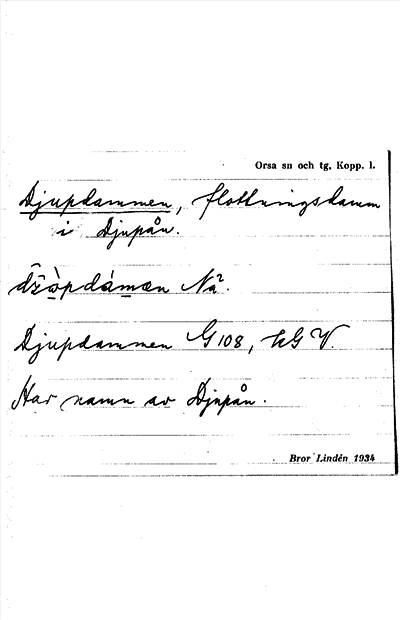 Orsa sn och tg, Kopp. l.
Djupdammen, flottningsdamm
i Djupån.
Djupdammen G 108, hG V.
Har namn av Djupån.
Bror Lindén 1934